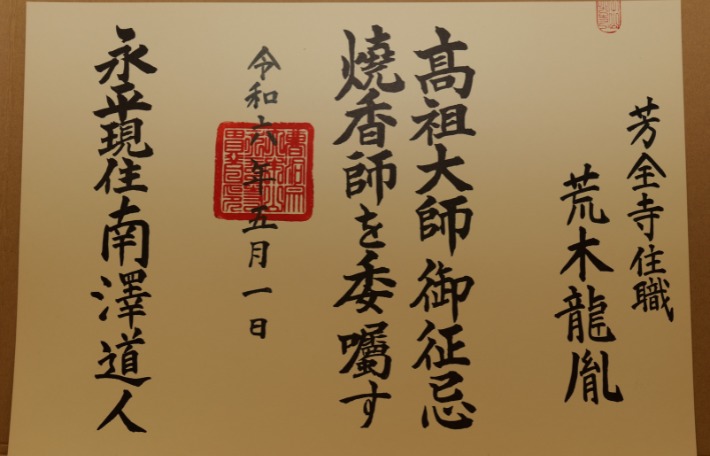 芳全寺住職
荒木龍胤
高祖大師御征忌
燒香師を委嘱す
令和六年五月一日
永平現住南澤道人